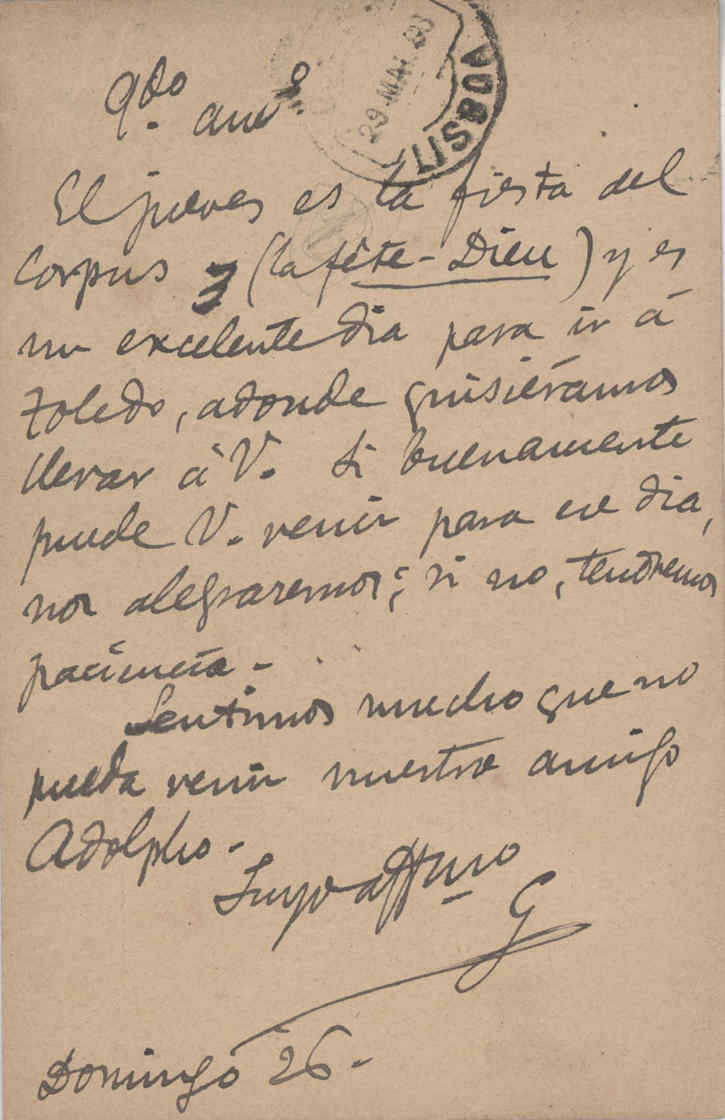 LISBOA
29 MAI
Qdo amº
El jueves es la fiesta del
Corpus 3 (la fête-Dieu) y es
un excelente dia para ir á
Toledo, adonde quisiéramos
llevar á V. Si buenamente
puede V. venir para ese dia,
nos alegraremos; si no, tendremos
paciencia.-
Sentimos mucho que no
pueda venir nuestro amigo
Adolpho.-
Suyo affmo
G
Domingo 26.-